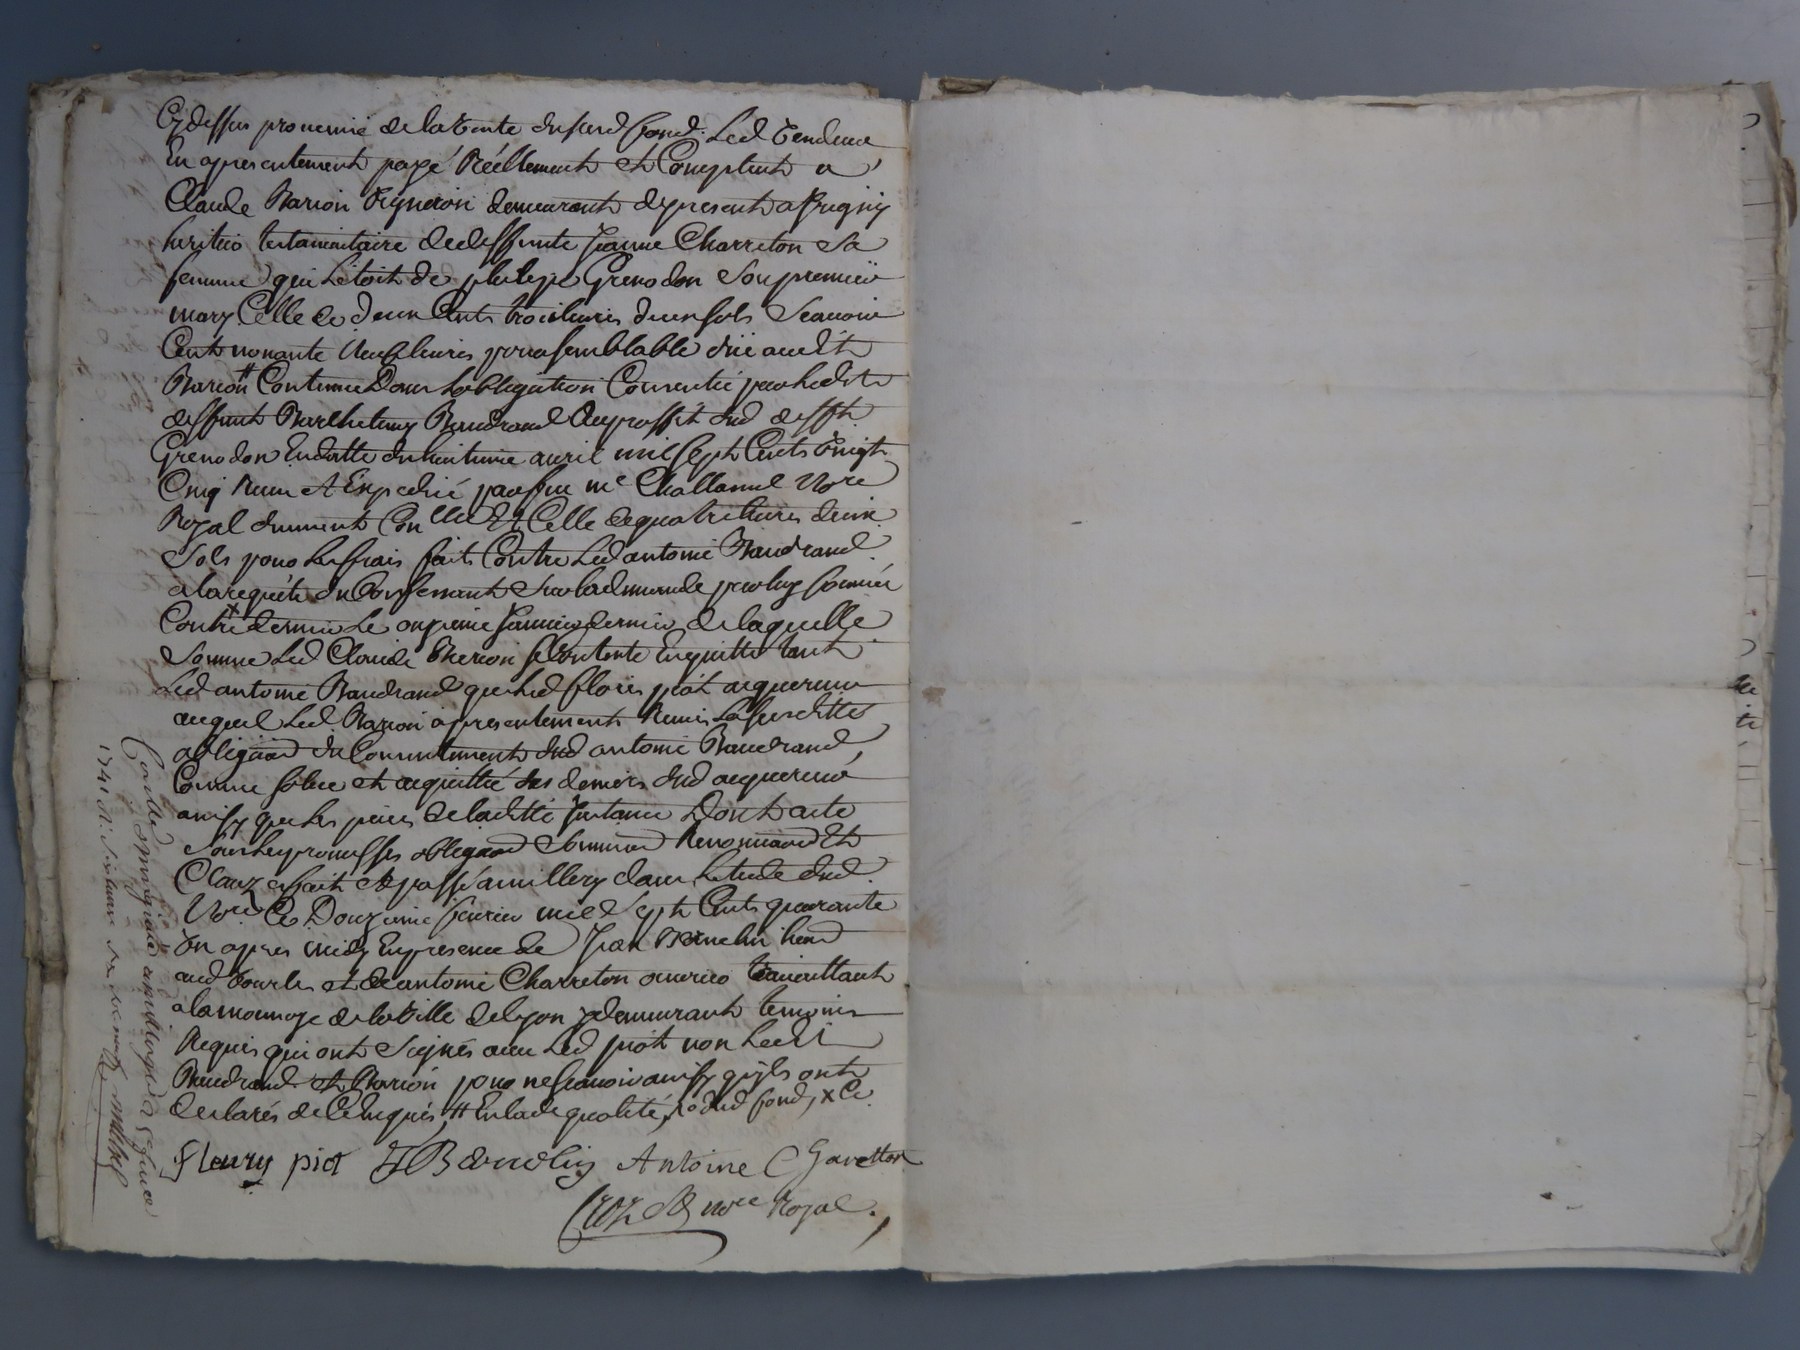 Cydessus provenue de la vente du susd fond. Led vendeur
En a presentement payé Réellement et Comptant a
Claude Barion Vigneron demeurant de present a Grigny
heritier testamentaire de deffunte Jeanne Charreton Sa
femme qui L'etoit de philipe Grenodon Son premier
mary Celle de deux Cents trois livres deux sols Scavoir
Cent nonante Neuf livres pour semblable düe audit
Barion # Contenue Dans L'obligation Consentie par Ledit
deffunt Barthelemy Baudrand Au proffit dud defft
Grenodon En datte du huitieme avril mil Sept Cents Vingt
Cinq Receu et Expedié par feu me Challamel Nore
Royal duement Conllée Et Celle de quatre livres deux
Sols pour Les frais faits Contre Led antoine Baudrand
a la requête du Consernant Sur la demande par luy formée
Contre dernier Le onzieme Janvier dernier de laquelle
Somme Led Claude Barion se Contente En quitte tant
Led antoine Baudrand que Led fleury piot acquereur
auquel Led Barion a presentement Remis La susditte
obligaon du Consentement dud antoine Baudrand
Comme solue et acquittée des deniers dud acquereur
ainsy que Les pieces de laditte Instance Dont acte
Sous Les promesses obligaon Soumisson Renonciaon Et
Clauz fait et passé a millery dans L'etude dud
Nore Ce Douzieme fevrier mil Sept Cents quarante
Un apres midy En presence de Jean
et de antoine Charreton ouvrier travaillant
a la monnoye de la Ville de Lyon y demeurant temoins
Requis qui ont Signés avec Led piot non Ledit
Baudrand et Barion pour ne Scavoir ainsy qu'ils ont
declarés de Ce Enquis, # En lad qualité, dud fond, x Ce
Fleury piot Antoine Charetton
nore Royal.
1741